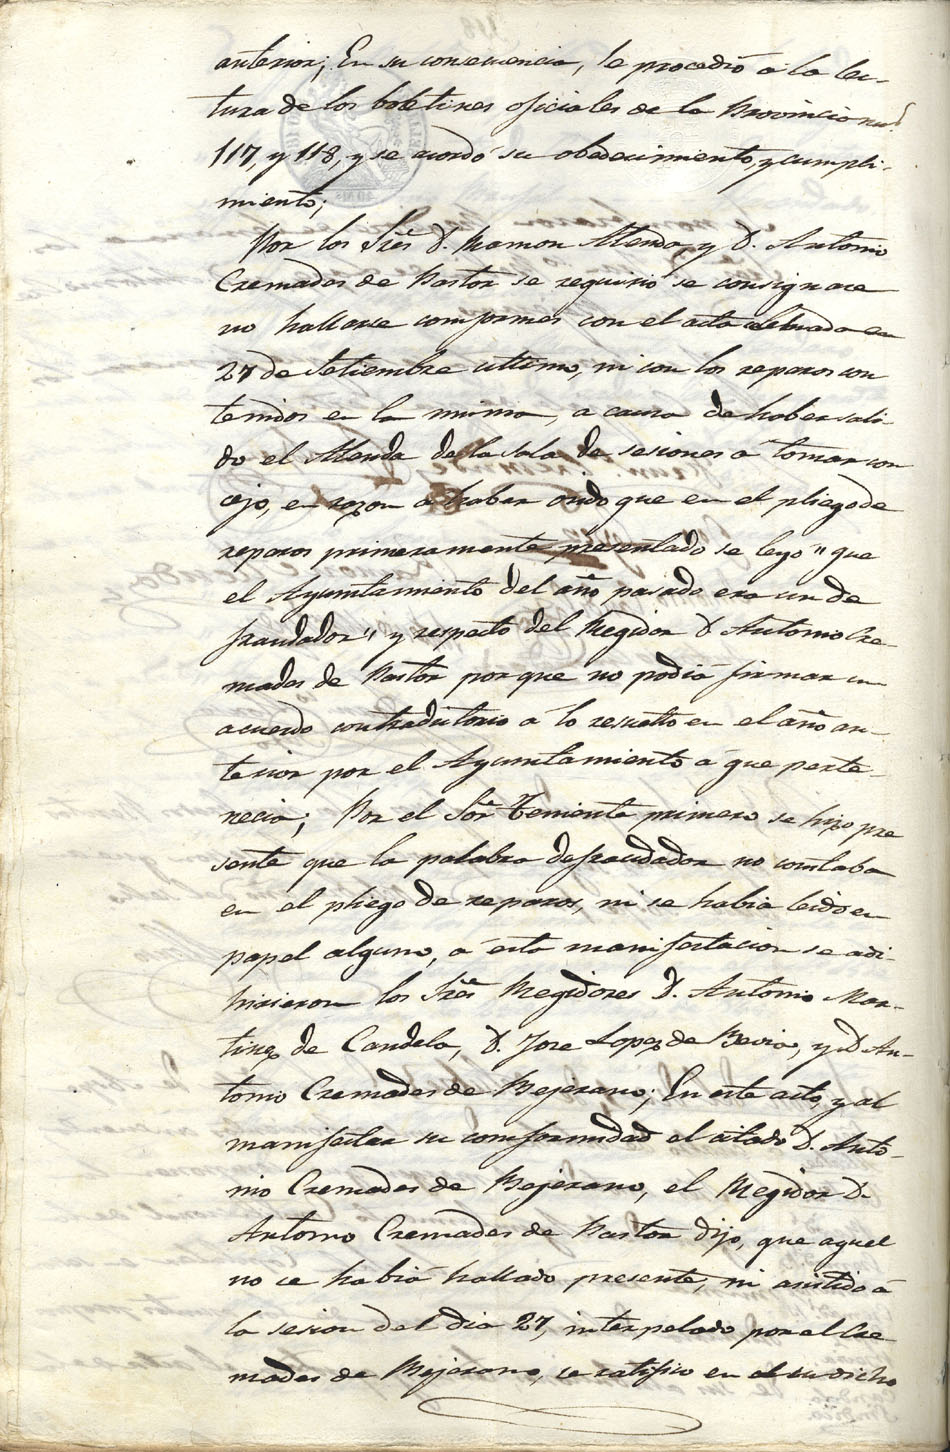 anterior; En su consecuencia, se procedió a la lec-
tura de los boletines oficiales de la Provincia num.s
117, y 118, y se acordó su obedecimiento, y cumpli-
miento;
Por los Sres D. Ramon Llenda, y D. Antonio
Cremades de Pastor se requirio se consignase
no hallarse comformes con el acta celebrada en
27 de Setiembre ultimo, ni con los reparos con
tenidos en la misma, a causa de haber sali-
do el Llenda de la sala de sesiones á tomar con
cejo, en razon a haber oido que en el pliego de
reparos primeramente presentado se leyo "que
el Ayuntamiento del año pasado era un de
fraudador" y respecto del Regidor D Antonio Cre-
mades de Pastor porque no podia firmar un
acuerdo contradictorio a lo resuelto en el año an-
terior por el Ayuntamiento á que perte-
necia; Por el Sor Teniente primero se hizo pre
sente que la palabra defraudador no constaba
en el pliego de reparos, ni se habia leido en
papel alguno, a ésta manifestacion se adi-
hirieron los Sres Regidores D. Antonio Mar-
tinez de Candela, D. Jose Lopez de Bevia, y D An-
tonio Cremades de Bejerano; En este acto, y al
manifestar su comformidad el citado D. Anto-
nio Cremades de Bejerano, el Regidor D.
Antonio Cremades de Pastor dijo, que aquel
no se habiá hallado presente, ni asistido á
la sesion del dia 27, interpelado por el Cre
mades de Bejerano, se ratifico en el su dicho